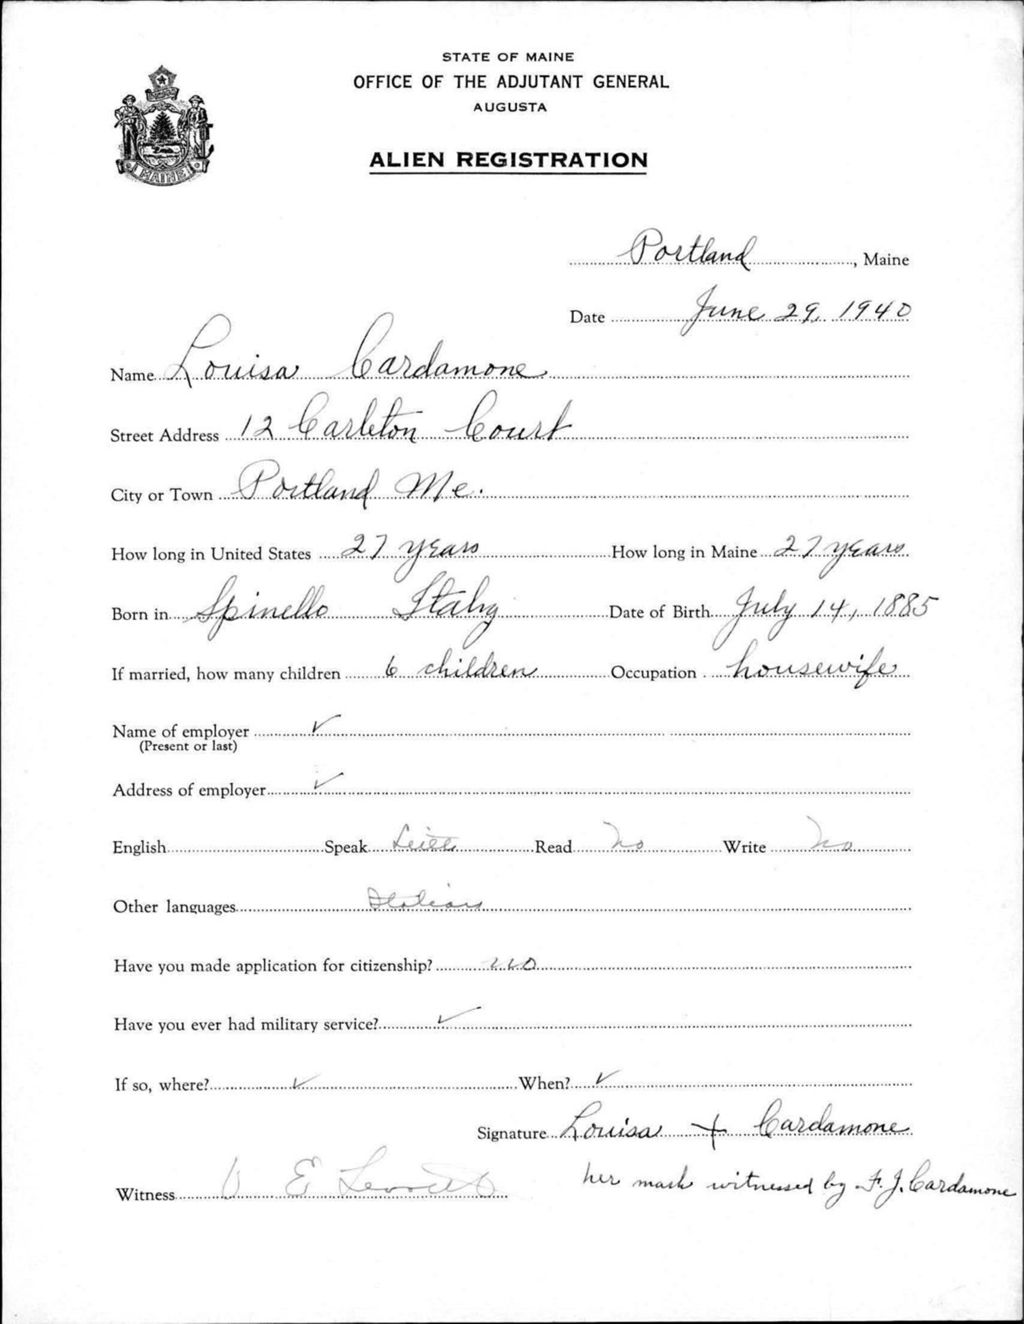 STATE OF MAINE
OFFICE OF THE ADJUTANT GENERAL
AUGUSTA
ALIEN REGISTRATION
MAINE
Portland, Maine
Date June 29, 1940
Name Louisa Cardamone
Street Address 12 Carleton Court
City or Town Portland Me.
How long in United States 27 years How long in Maine 27 years
Born in Spinello Italy Date of Birth July 14, 1885
If married, how many children 6 children Occupation housewife
Name of employer ✓
(Present or last)
Address of employer ✓
English Speak Read No Write No
Other languages Italian
Have you made application for citizenship? no
Have you ever had military service? ✓
If so, where? ✓ When? ✓
Signature Louisa + Cardamone
her mark witnessed by F. J. Cardamone
Witness E